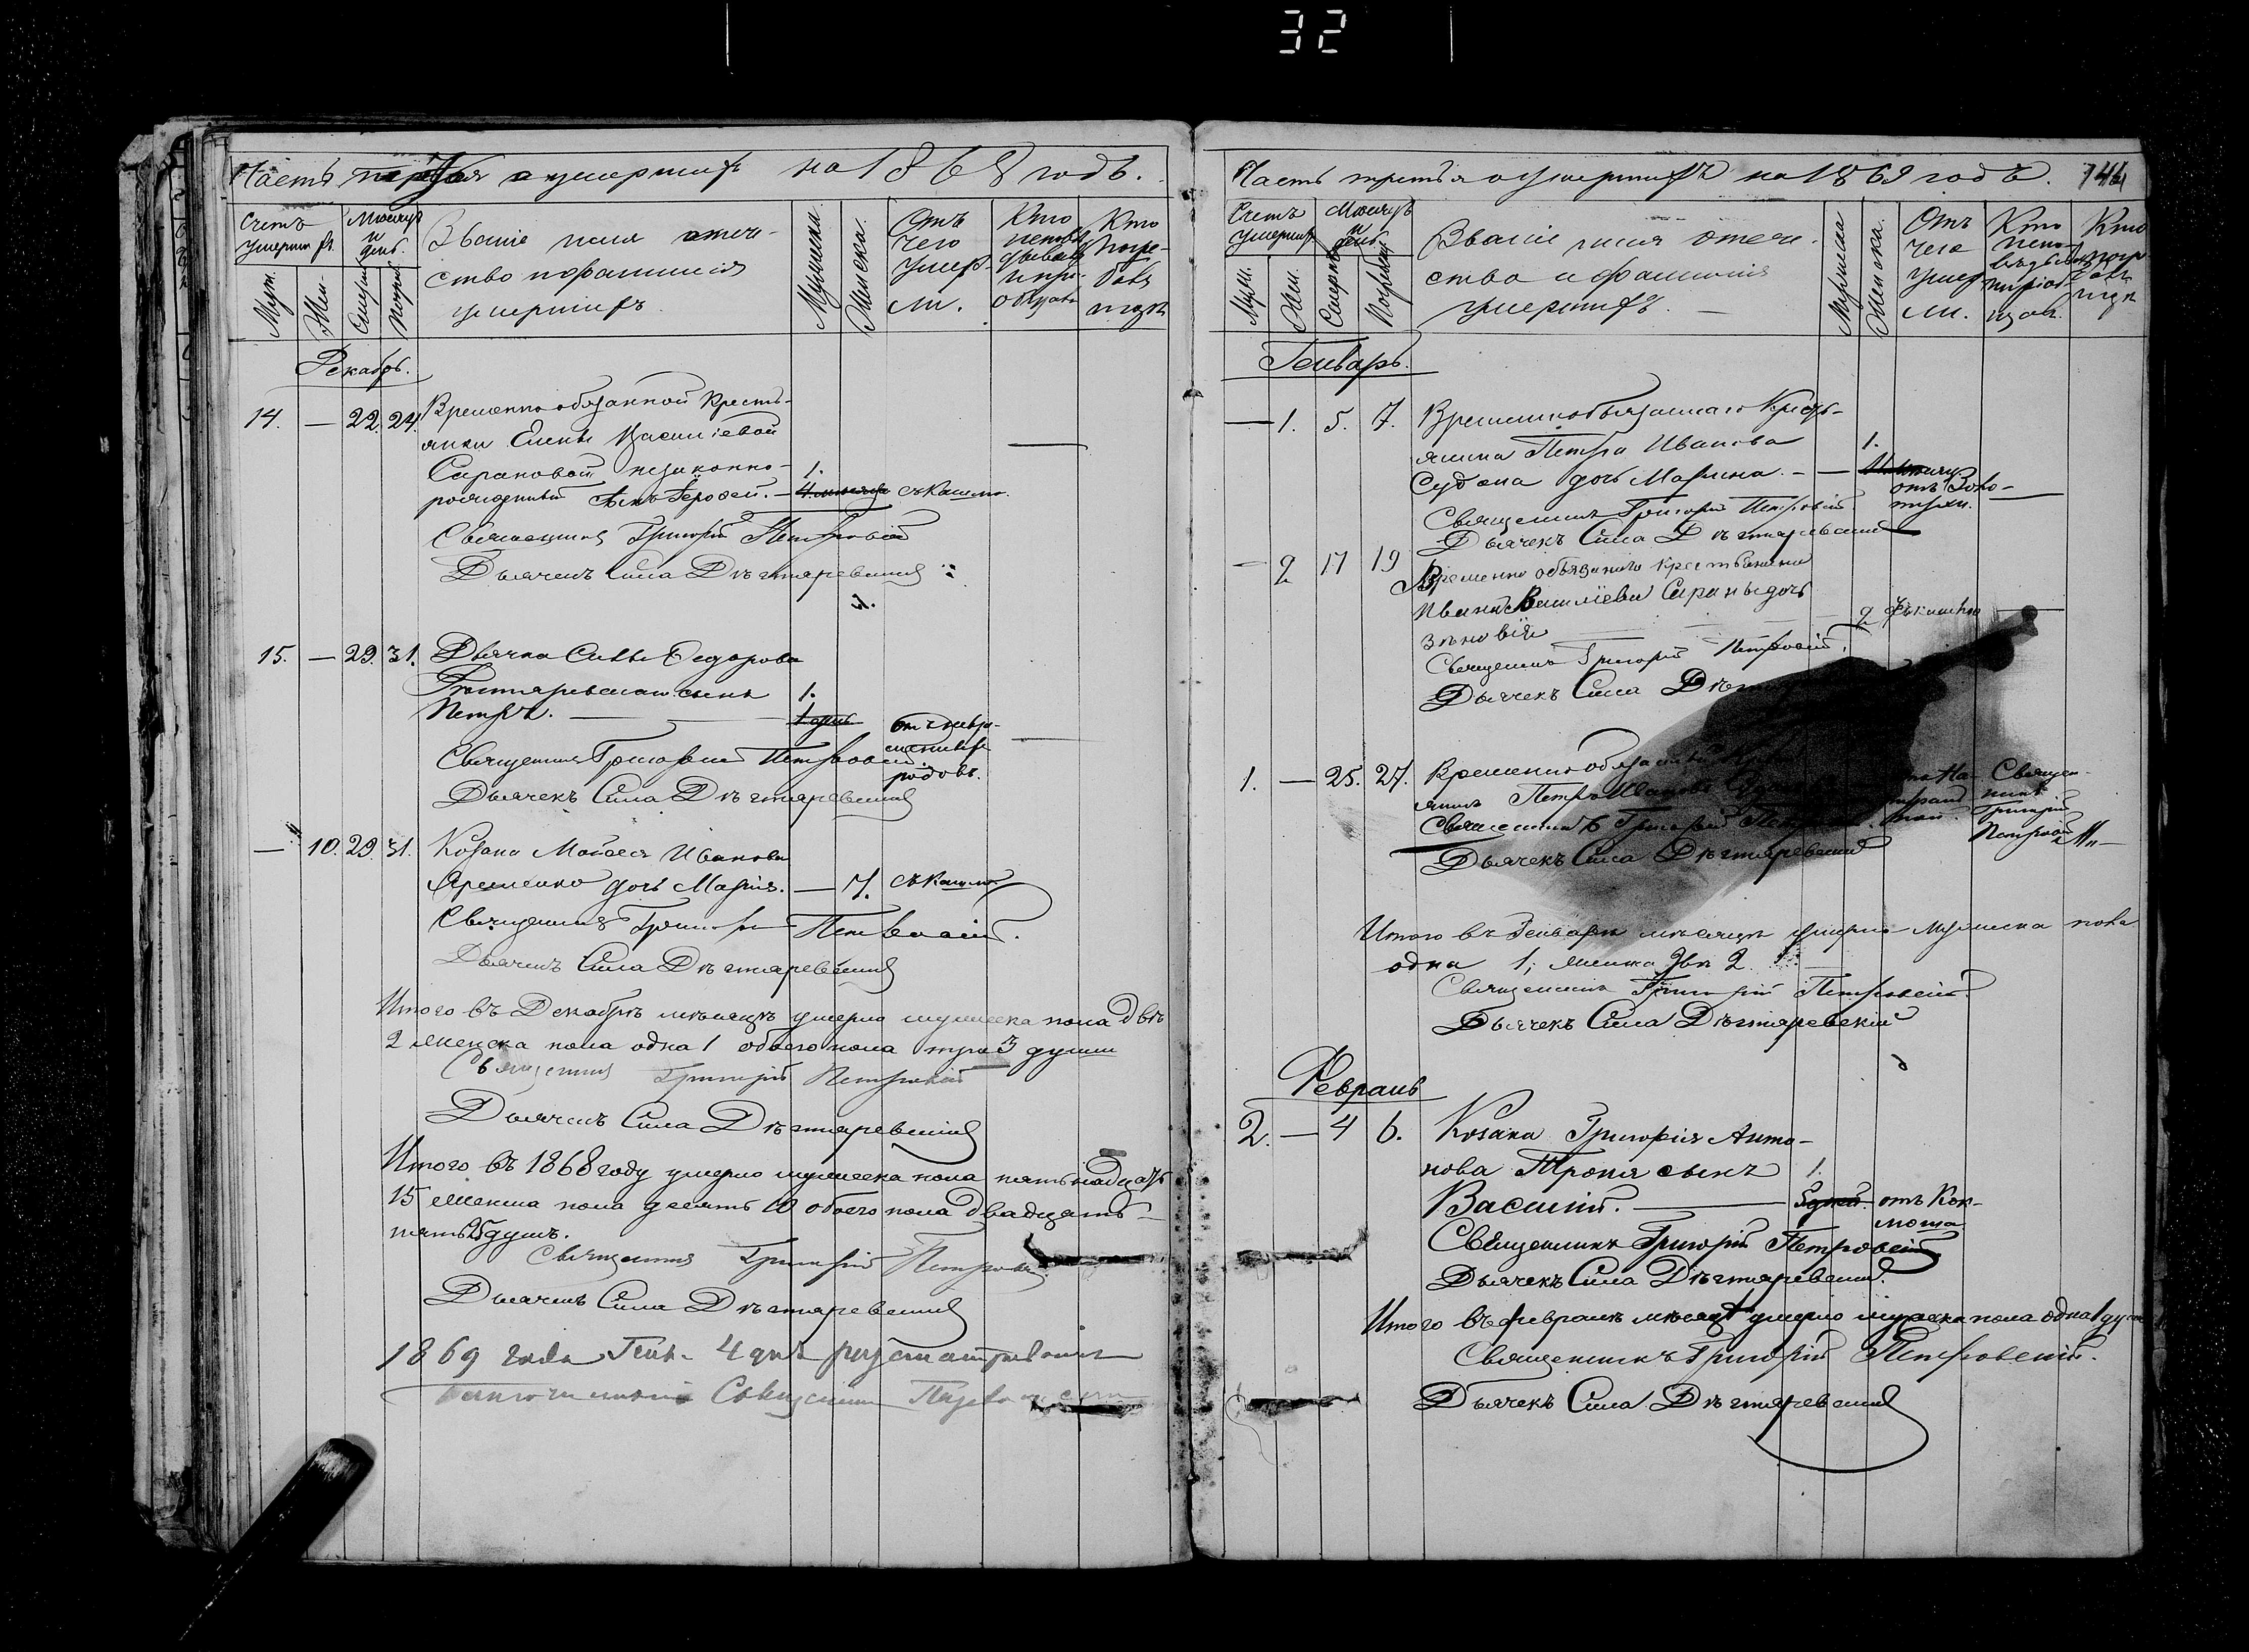 32
Часть третья о умершихъ на 1868 годъ.
Счетъ умершихъ.
Муж.
Жен.
Мѣсяцъ и день.
Смерти
Погреб
Званіе имя отече-
ство и фамилия
умершихъ.
Мужеска.
Женска.
Отъ чего умер-
ли.
Кто исповѣдывалъ и прі-
общалъ
Кто погре-
балъ и гдѣ
Декабрь.
14. — 22. 24. Временно обязанной кресть-
янки Елены Васильевой
Сарановой незаконно- 1.
рожденный сынъ Герасей. — съ кашлю.
Священникъ Григорій Петровскій
Дьячекъ Сила Дѣгтяревскій
15. — 29. 31. Дьячка Силы Федорова
Дѣгтяревскаго сынъ 1.
Петръ. — 1 день
родовъ.
Священникъ Григорій Петровскій
Дьячекъ Сила Дѣгтяревскій
— 10. 29. 31. Козака Мойсея Иванова
Яременко дочь Марія. — 7. съ кашлю
Священникъ Григорій Петровскій.
Дьячекъ Сила Дѣгтяревскій
Итого въ Декабрѣ мѣсяцѣ умерло мужеска пола двѣ
2 женска пола одна 1 обоего пола три 3 души
Священникъ Григорій Петровскій
Дьячекъ Сила Дѣгтяревскій
Итого въ 1868 году умерло мужеска пола пятьнадцать
15 женска пола десять 10 обоего пола двадцать
пять 25 душъ.
Священникъ Григорій Петровскій
Дьячекъ Сила Дѣгтяревскій
1869 года Генв. 4 дня
Благочинный Священникъ
Часть третья о умершихъ на 1869 годъ. 144
Счетъ умершихъ
Муж.
Жен.
Мѣсяцъ и день
Смерти
Погребенія
Званіе имя отече-
ство и фамилія
умершихъ. —
Мужеска
Женска.
Отъ чего умер
ли.
Кто испо-
вѣдывалъ и пріоб-
щалъ.
Кто погре
балъ и гдѣ
Генварь.
— 1. 5. 7. Временнообязаннаго Кресть-
янина Петра Иванова 1.
дочь Марина. —
отъ Золо-
тухи.
Священникъ Григорій Петровскій
Дьячекъ Сила Дѣгтяревскій
— 2 17 19 Временно обязаного крестьянина
Ивана Василіева Сараны дочь
Зѣновія 2
Священникъ Григорій Петровскій.
Дьячекъ Сила
1. — 25. 27. Временно обязанный
янинъ Петръ Ивановъ
Священникъ Григорій
Дьячекъ Сила Дѣгтяревскій
Священ-
никъ
Григорій
Петровскій
Итого въ Генварѣ мѣсяцѣ умерло мужеска пола
одна 1; женска двѣ 2.
Священникъ Григорій Петровскій.
Дьячекъ Сила Дѣгтяревскій
Февраль
2. — 4 6. Козака Григорія Анто-
нова Троня сынъ 1.
Василій. — 5 дней. отъ Кок-
люша
Священникъ Григорій Петровскій
Дьячекъ Сила Дѣгтяревскій.
Итого въ февралѣ мѣсяцѣ умерло мужска пола одна 1 душа
Священникъ Григорій Петровскій.
Дьячекъ Сила Дѣгтяревскій